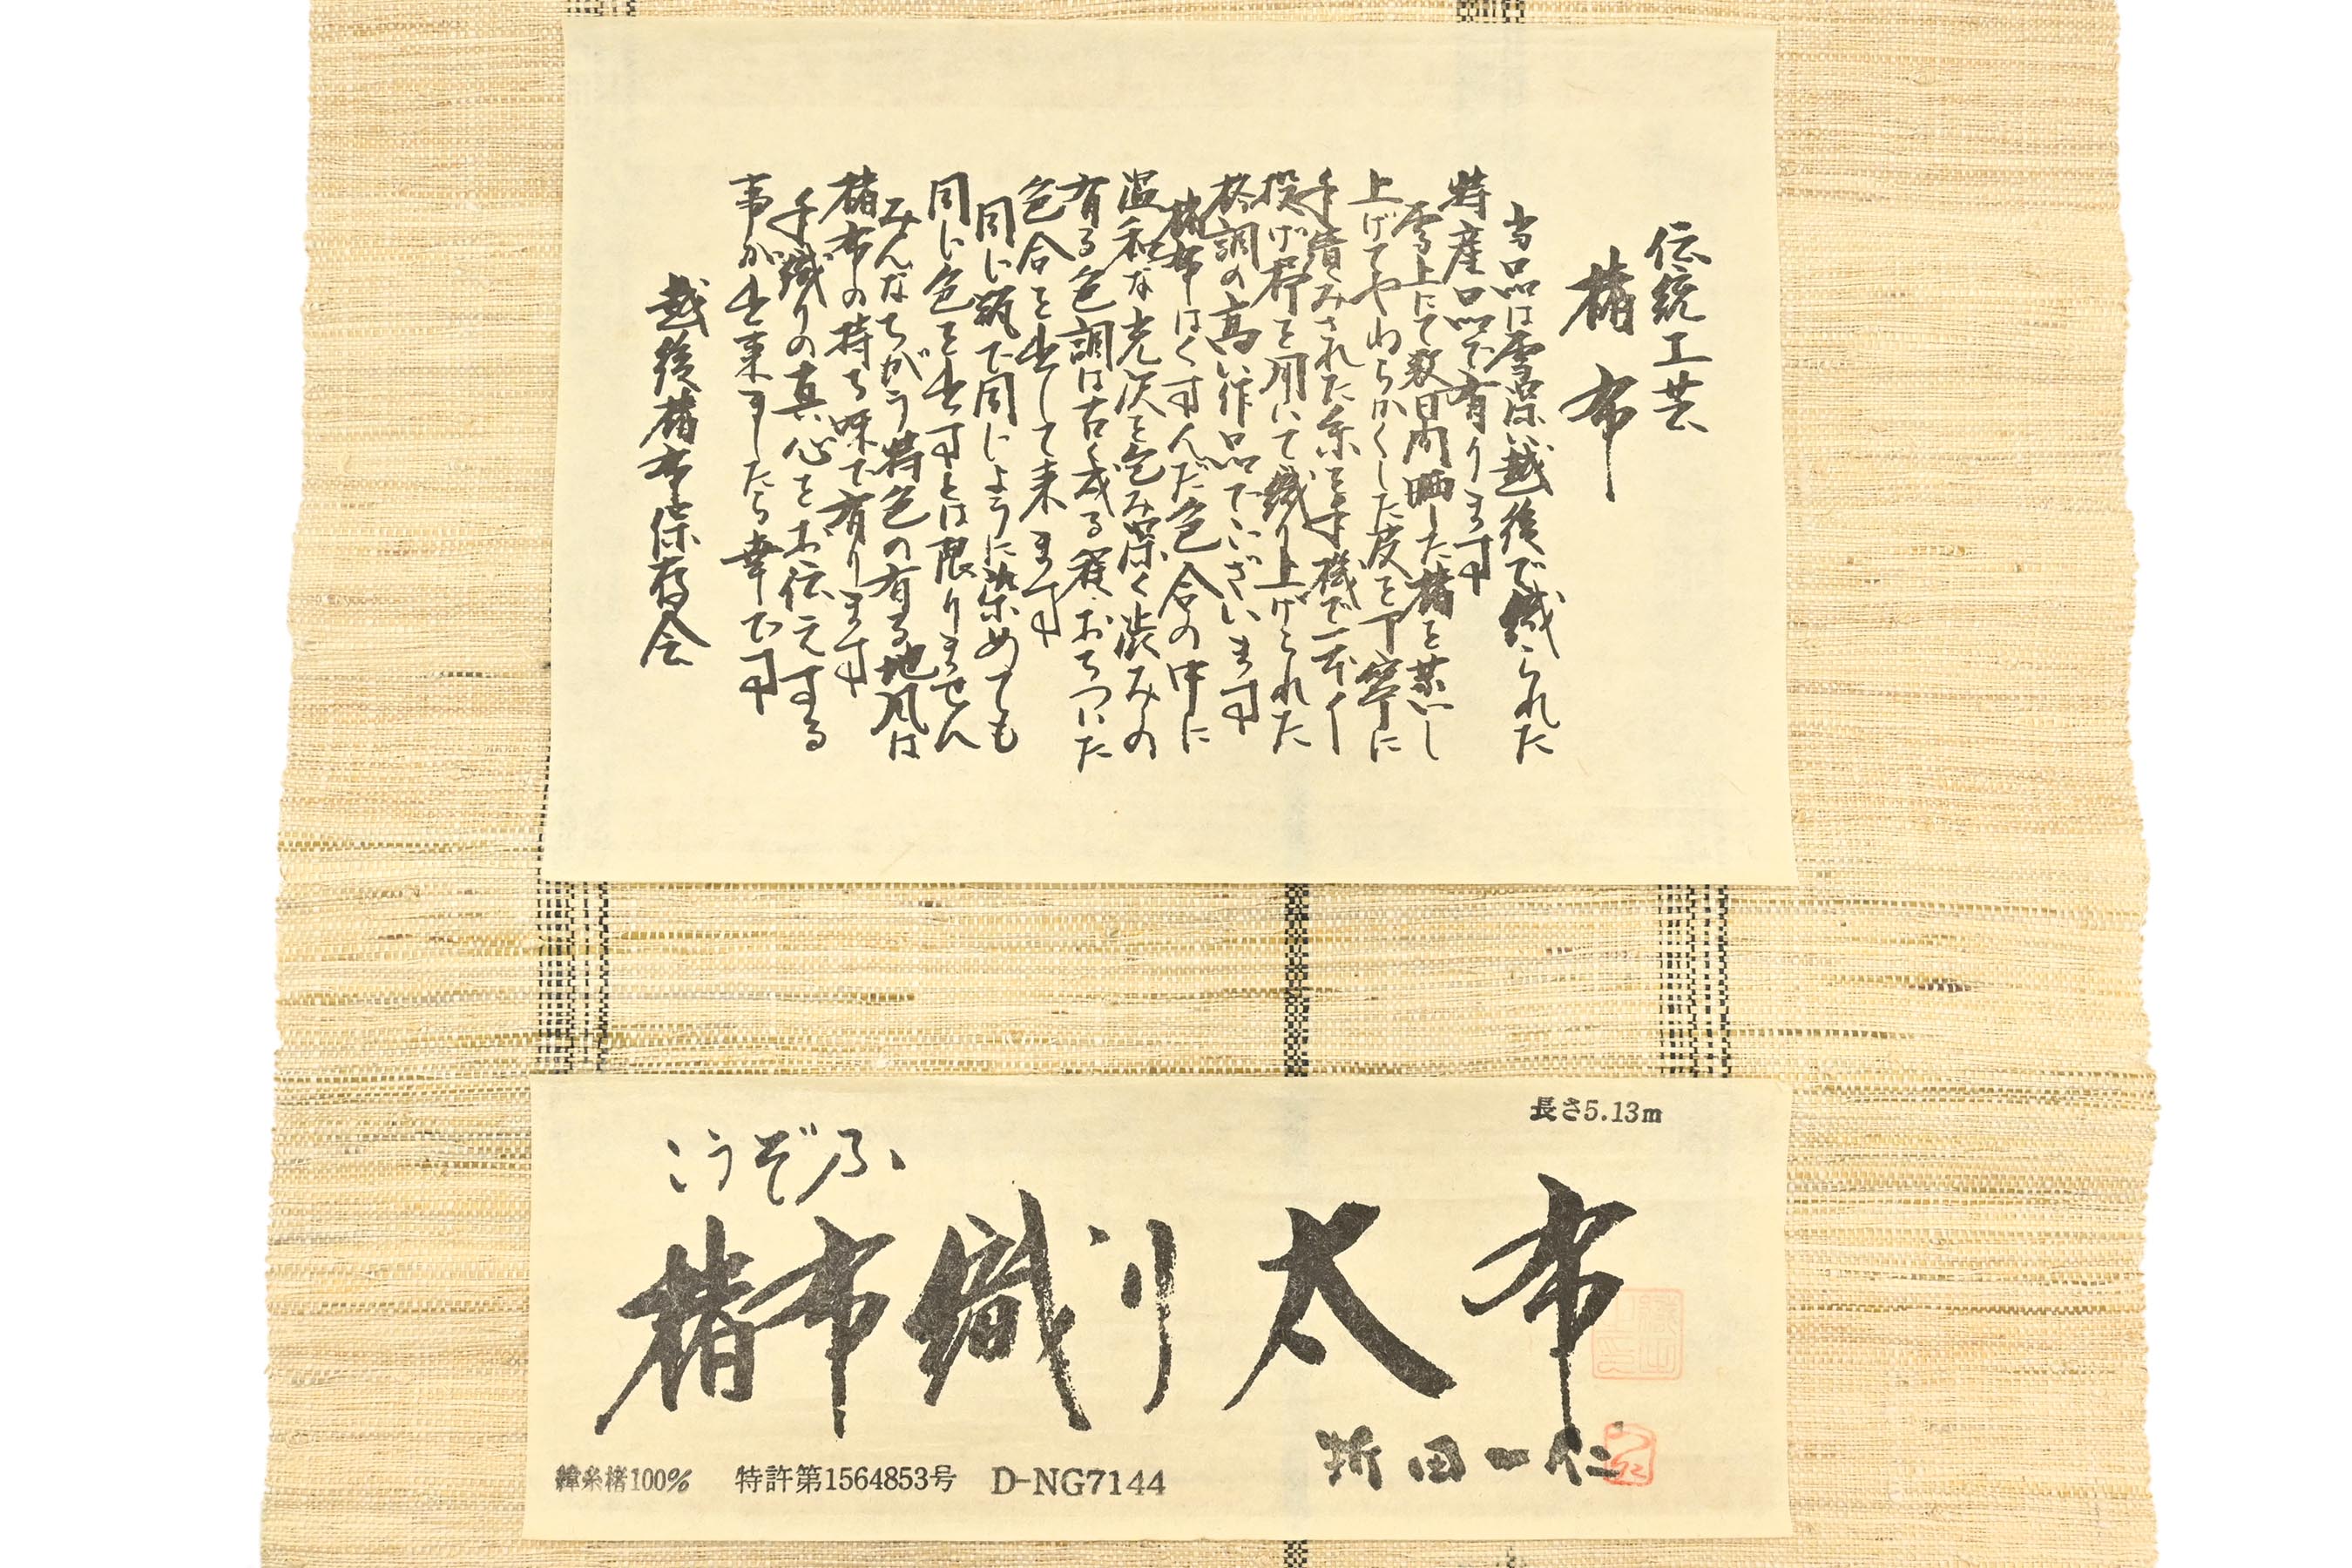 伝統工芸
楮布
当品は雪深い越後で織られた
特産品で有ります
雪上にて数日間晒した楮を蒸し
上げてやわらかくした皮を丁寧に
手績みされた糸を手機で一本一
投げ杼を用いて織り上げられた
格調の高い作品でございます
楮布はくすんだ色合の中に
温和な光沢を包み深く渋みの
有る色調は古く成る程おちついた
色合を出して来ます
同じ瓶で同じように染めても
同じ色を出すとは限りません
みんなちがう特色の有る地風は
楮布の持ち味で有ります
手織りの真心をお伝えする
事が出来ましたら幸です
越後楮布保存会
長さ5.13m
こうぞふ
楮布織り太布
田一仁
緯糸楮100% 特許第1564853号 D-NG7144